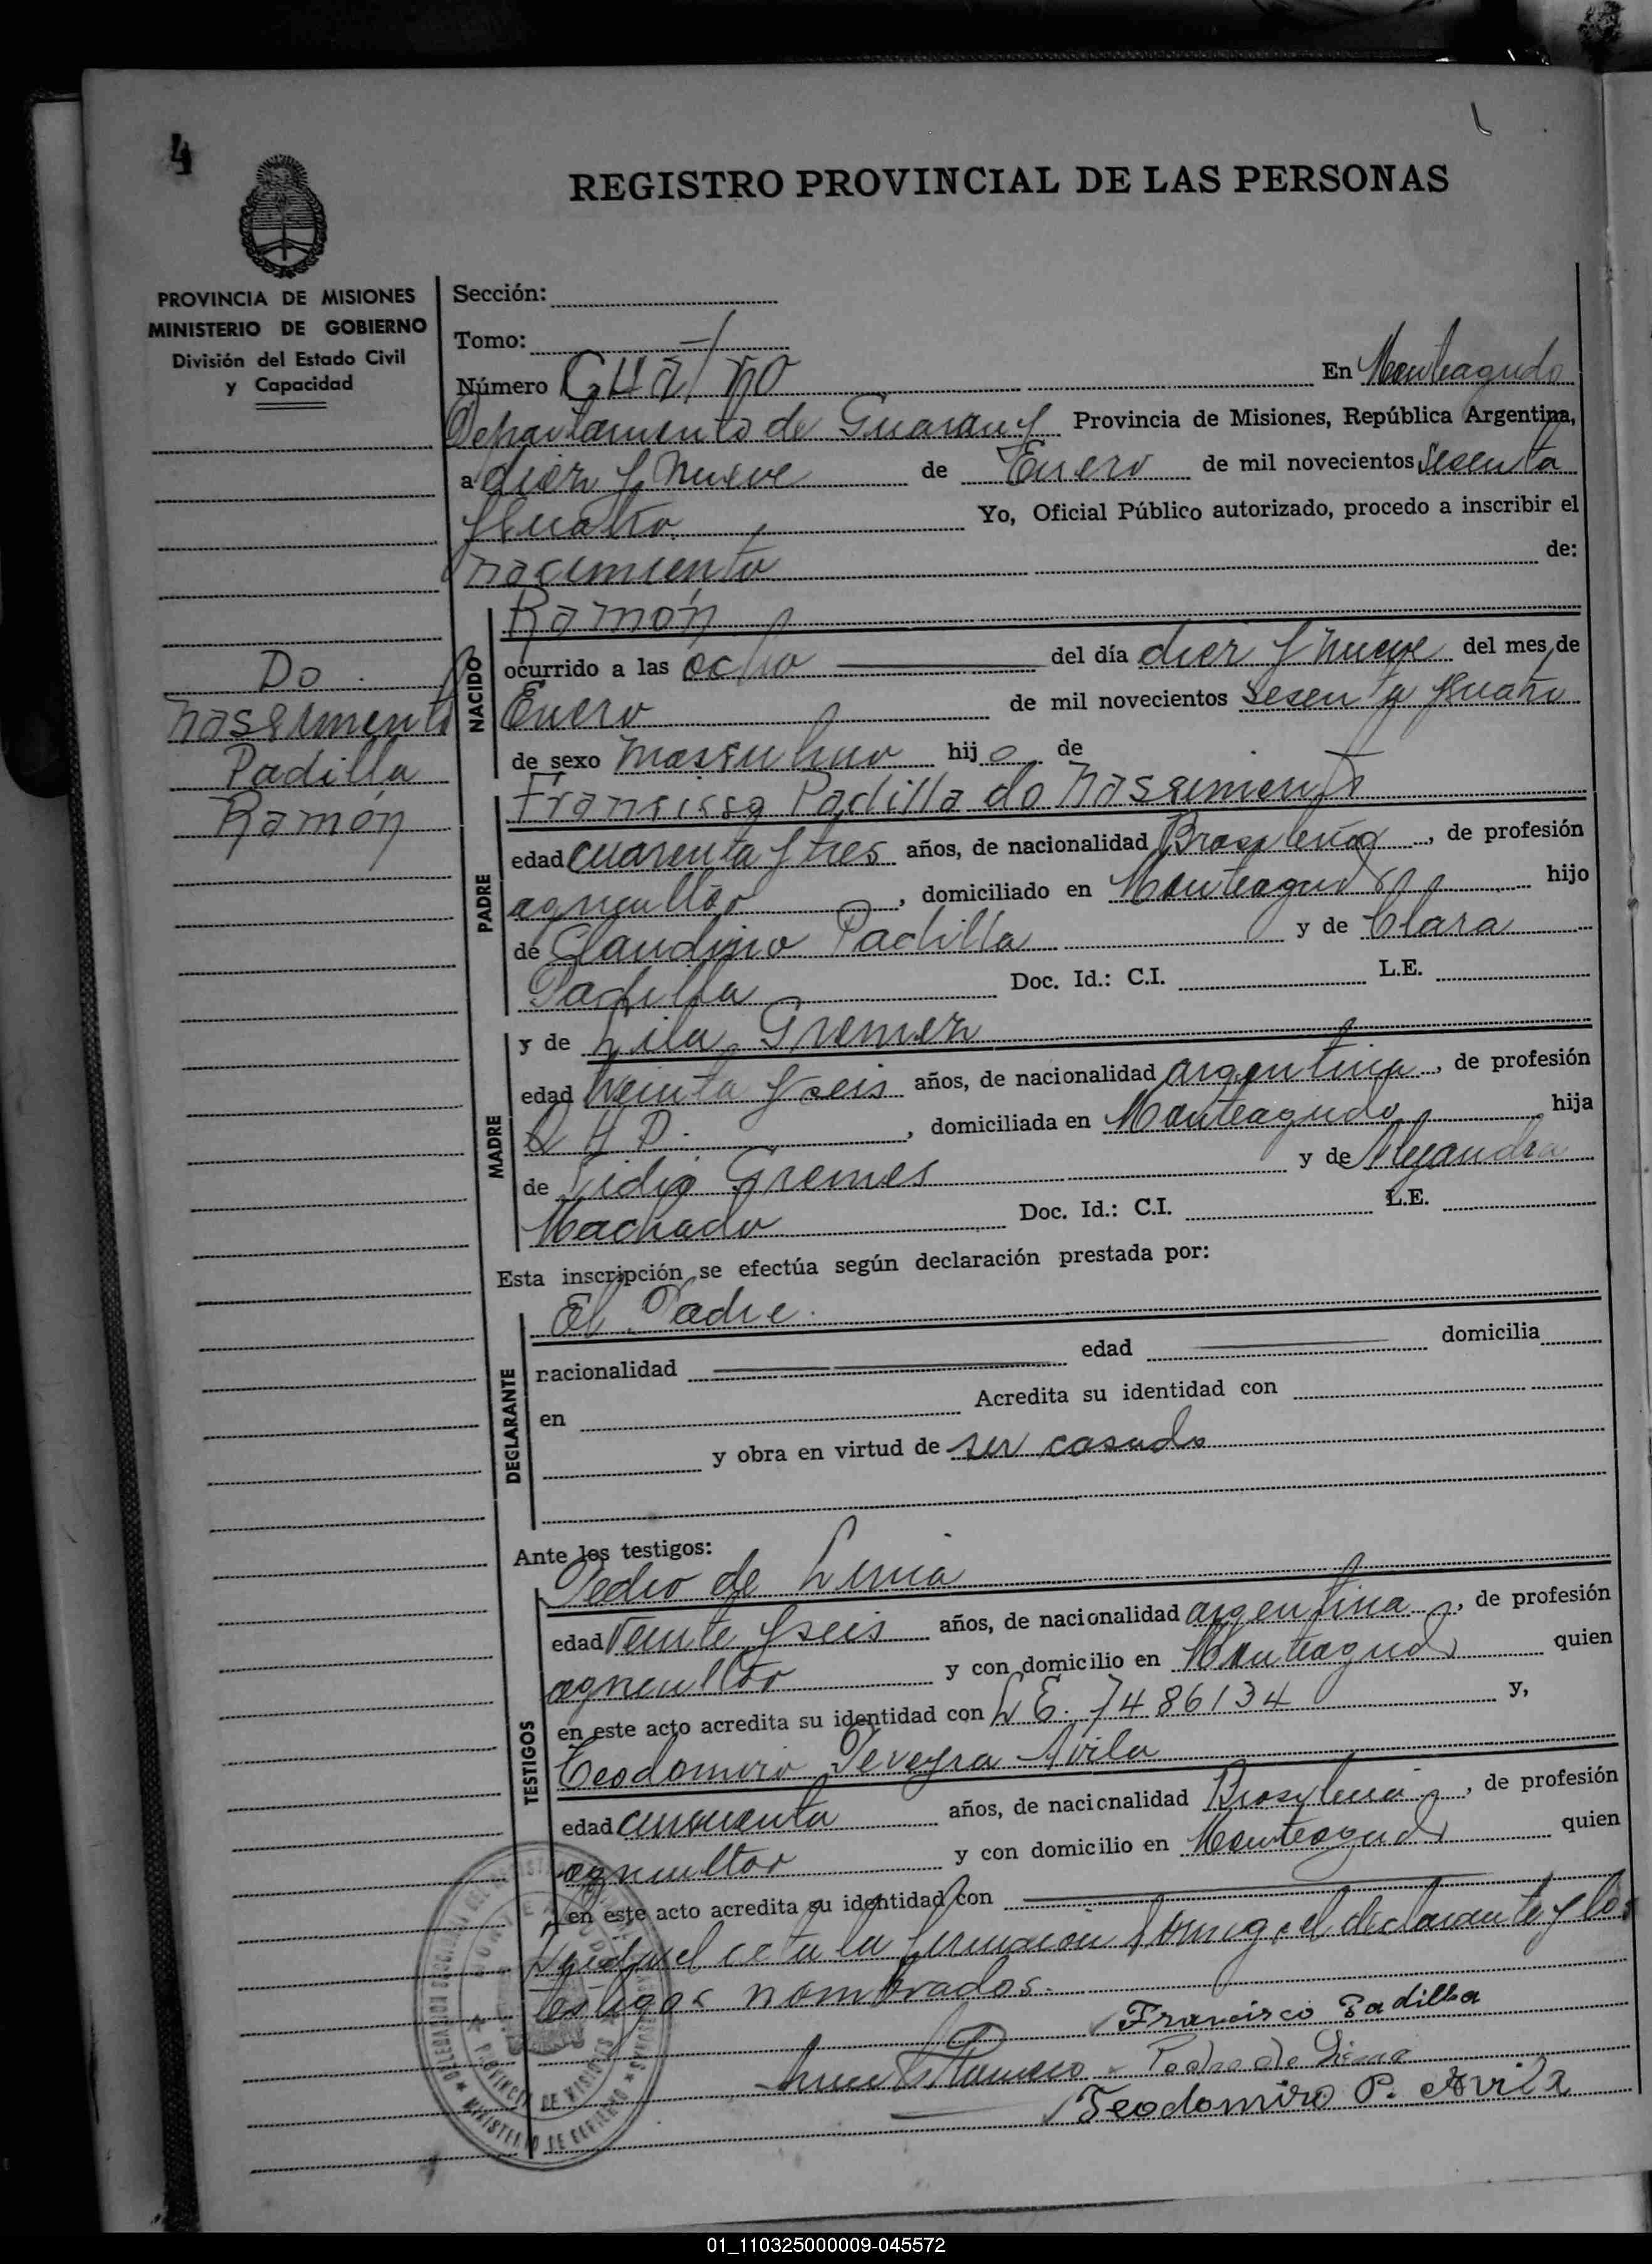 4
REGISTRO PROVINCIAL DE LAS PERSONAS
PROVINCIA DE MISIONES
MINISTERIO DE GOBIERNO
División del Estado Civil
y Capacidad
Sección:
Tomo:
Número Cuatro En Monteagudo
Departamento de Guarany Provincia de Misiones, República Argentina,
a diez y nueve de Enero de mil novecientos sesenta
y cuatro. Yo, Oficial Público autorizado, procedo a inscribir el
nacimiento de:
Do
Nassimento
Padilla
Ramón
NACIDO
Ramón
ocurrido a las ocho del día diez y nueve del mes de
Enero de mil novecientos sesenta y cuatro
de sexo masculino hijo de
PADRE
Francisco Padilla do Nassimento
edad cuarenta y tres años, de nacionalidad Brasileña, de profesión
agricultor, domiciliado en Monteagudo hijo
de Claudino Padilla y de Clara
Padilla Doc. Id.: C.I. L.E.
MADRE
y de Lila Gremez
edad treinta y seis años, de nacionalidad argentina, de profesión
Q H D., domiciliada en Monteagudo, hija
de Gremes y de Alejandra
Machado Doc. Id.: C.I. L.E.
Esta inscripción se efectúa según declaración prestada por:
DECLARANTE
El Padre.
nacionalidad edad domicilia
en Acredita su identidad con
y obra en virtud de ser casado
Ante los testigos:
TESTIGOS
Pedro de Lima
edad veinte y seis años, de nacionalidad argentina, de profesión
agricultor y con domicilio en Monteagudo quien
en este acto acredita su identidad con L E. 7486134 y,
Teodomiro Pereyra Avila
edad cincuenta años, de nacionalidad Brasileña, de profesión
agricultor y con domicilio en Monteagudo quien
en este acto acredita su identidad con
el acta la firman conmigo, el declarante y los
testigos nombrados.
Francisco Padilla
Pedro de Lima
Teodomiro P. Avila
PROVINCIA DE MISIONES
MINISTERIO DE GOBIERNO
01_110325000009-045572